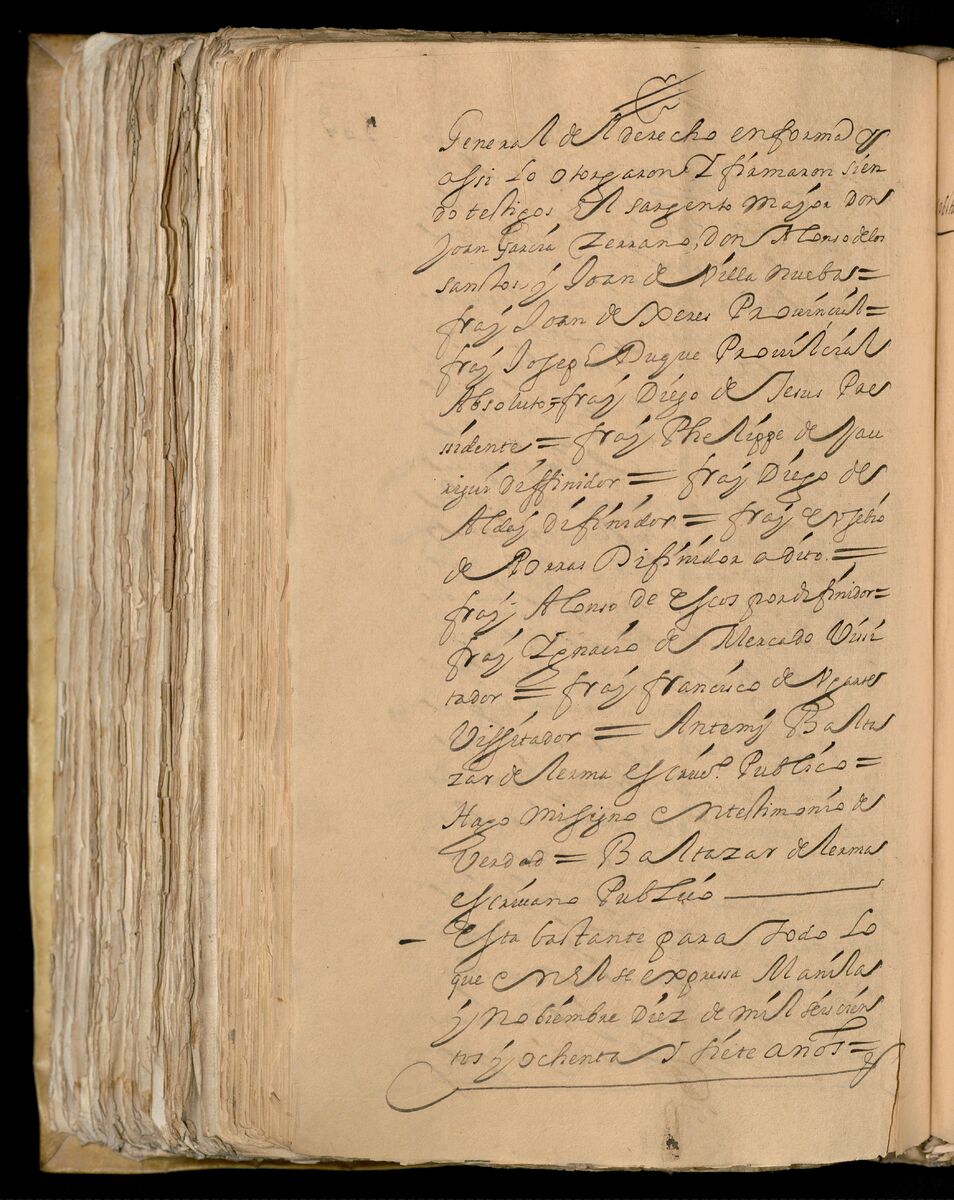 General del derecho en forma y
assi lo otorgaron Y firmaron sien
do testigos El sargento Major Don
Joan Garcia Zerrano, Don Alonso de los
santos y Joan de Villa nuebas=
fray Joan de Xeres Provincial=
fray Joseph Duque Provincial
Absoluto=fray Diego de Jesus Pre
sidente= fray Phelippe de Jau
regui Diffinidor = fray Diego de
Alday Difinidor= fray Eusebio
de Porras Difinidor adito. =
fray Alonso de Escos por difinidor=
fray Ygnacio de Mercado Visi
tador = fray francisco de Ugarte
Vissitador = Antemy Balta
zar de lerma escriuo. Publico =
Hago mi signo en testimonio de
Verdad = Baltazar de lerma
escriuano Publico
- Esta bastante para todo lo
que en El se expressa Manila
y Nobiembre Diez de mil seiscien
tos y ochenta y siete años=